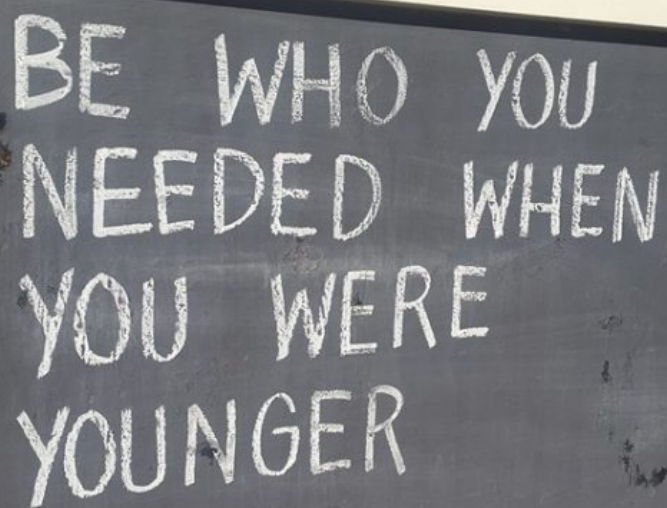 BE WHO YOU
NEEDED WHEN
YOU WERE
YOUNGER